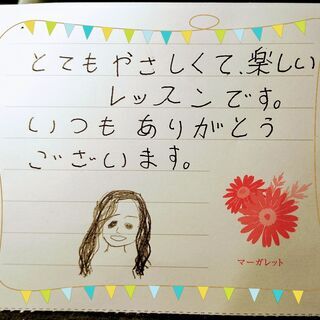 とてもやさしくて、楽しい
レッスンです。
いつもありがとう
ございます。
マーガレット